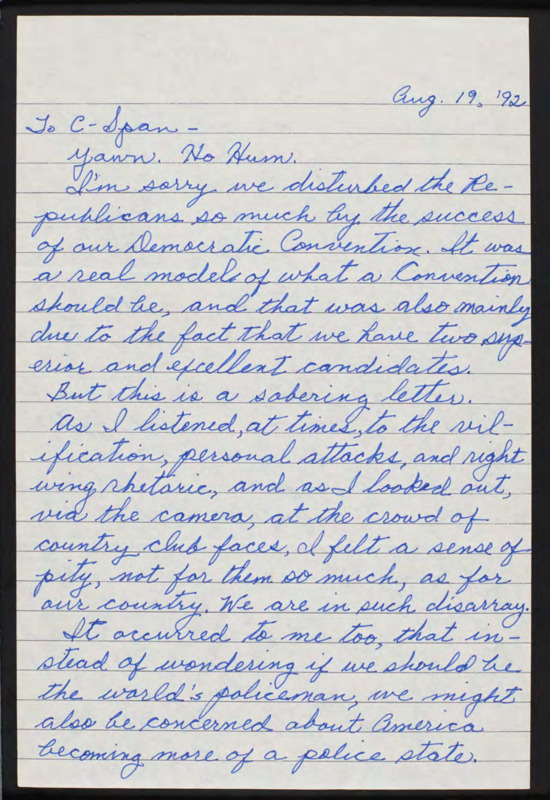 Aug. 19, '92
To C-Span -
Yawn. Ho Hum.
I'm sorry we disturbed the Re-
publicans so much by the success
of our Democratic Convention. It was
a real model of what a Convention
should be, and that was also mainly
due to the fact that we have two sup-
erior and excellent candidates.
But this is a sobering letter.
As I listened, at times, to the vil-
ification, personal attacks, and right
wing rhetoric, and as I looked out,
via the camera, at the crowd of
country club faces, I felt a sense of
pity, not for them so much, as for
our country. We are in such disarray.
It occurred to me too, that in-
stead of wondering if we should be
the world's policeman, we might
also be concerned about America
becoming more of a police state.